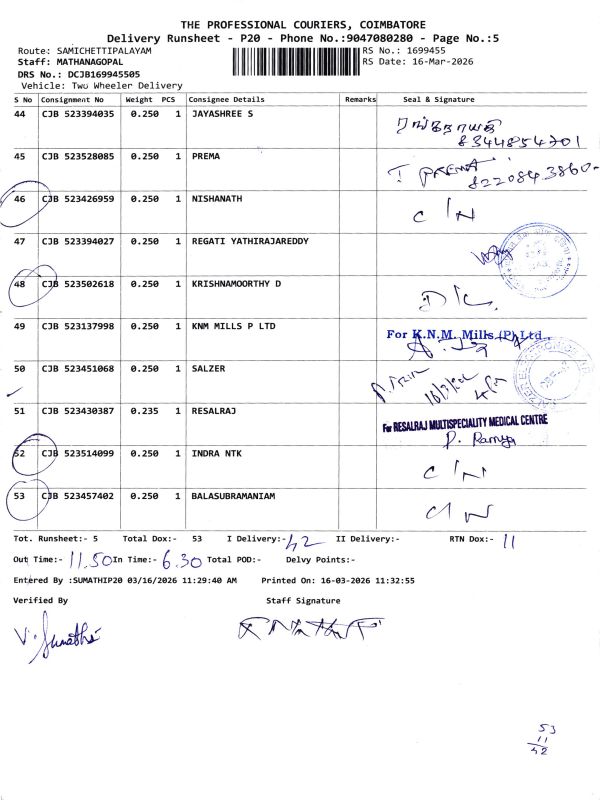 THE PROFESSIONAL COURIERS, COIMBATORE
Delivery Runsheet - P20 - Phone No.:9047080280 - Page No.:5
Route: SAMICHETTIPALAYAM
RS No.: 1699455
Staff: MATHANAGOPAL
RS Date: 16-Mar-2026
DRS No.: DCJB169945505
Vehicle: Two Wheeler Delivery
S No Consignment No Weight PCS Consignee Details Remarks Seal & Signature
44 CJB 523394035 0.250 1 JAYASHREE S ரங்கநாயகி
8344854701
45 CJB 523528085 0.250 1 PREMA T PREMA
8220843860
46 CJB 523426959 0.250 1 NISHANATH C/N
47 CJB 523394027 0.250 1 REGATI YATHIRAJAREDDY
48 CJB 523502618 0.250 1 KRISHNAMOORTHY D D/C
49 CJB 523137998 0.250 1 KNM MILLS P LTD For K.N.M. Mills (P) Ltd.,
50 CJB 523451068 0.250 1 SALZER
51 CJB 523430387 0.235 1 RESALRAJ For RESALRAJ MULTISPECIALITY MEDICAL CENTRE
P. Ramya
52 CJB 523514099 0.250 1 INDRA NTK C/N
53 CJB 523457402 0.250 1 BALASUBRAMANIAM C/N
Tot. Runsheet:- 5 Total Dox:- 53 I Delivery:- 42 II Delivery:- RTN Dox:- 11
Out Time:- 11.50 In Time:- 6.30 Total POD:- Delvy Points:-
Entered By :SUMATHIP20 03/16/2026 11:29:40 AM Printed On: 16-03-2026 11:32:55
Verified By Staff Signature
V. Sumathi
53
11
42